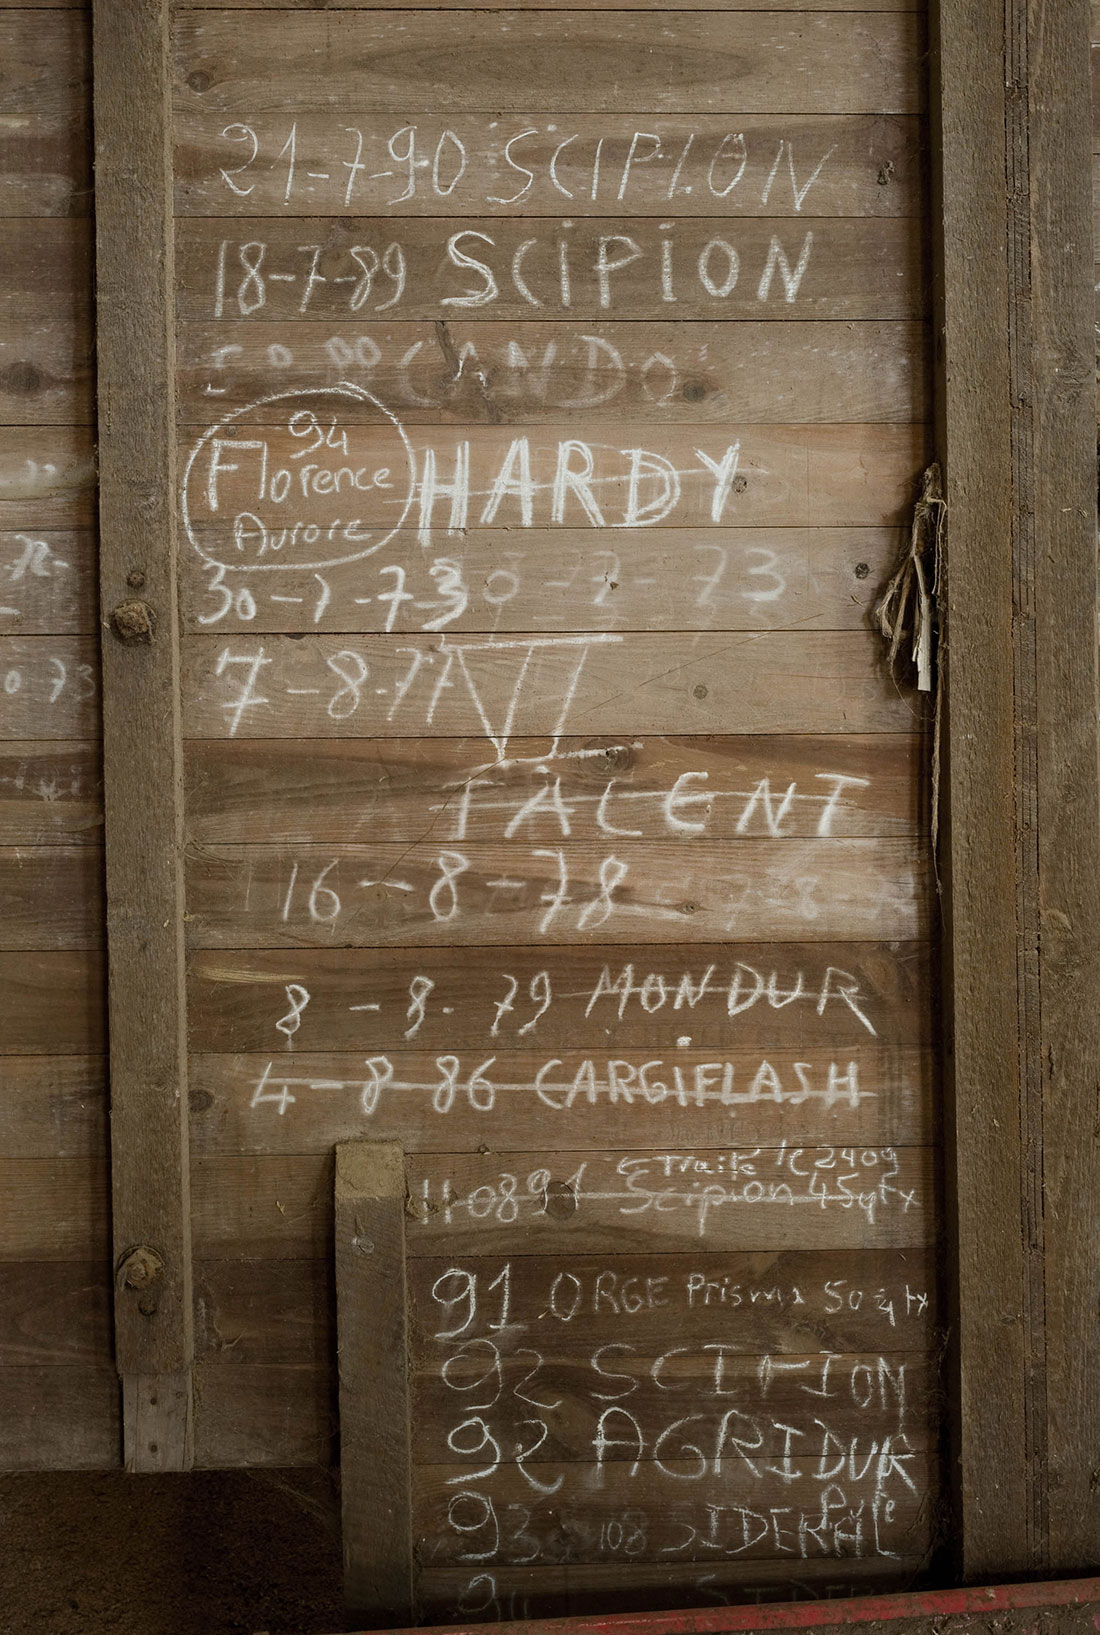 21-7-90 SCIPION
18-7-89 SCIPION
CANDO
94
Florence
Aurore
HARDY
30-7-73 0-7-73
7-8-77
TALENT
16-8-78
8-8-79 MONDUR
4-8-86 CARGIFLASH
Traité le 240g
110891 Scipion 45qtx
91 ORGE Prisma 50 qtx
92 SCIPION
92 AGRIDUR
93 108 SIDERAL
073